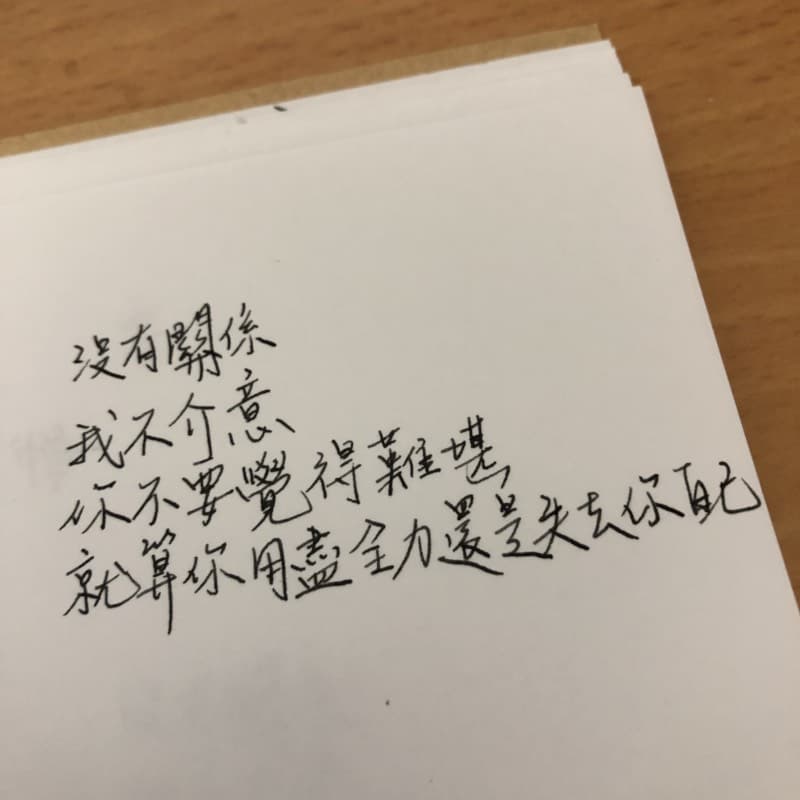 沒有關係
我不介意
你不要覺得難堪
就算你用盡全力還是失去你自己